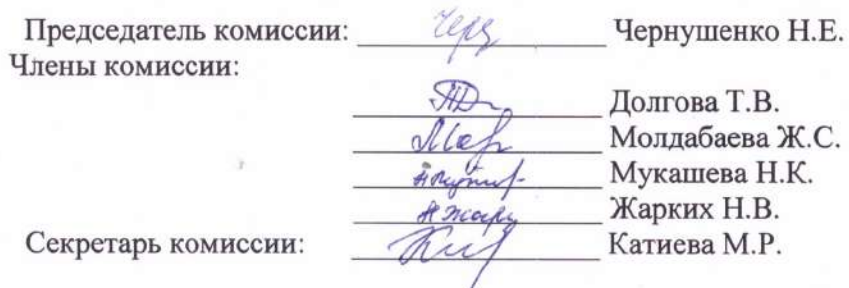 Председатель комиссии: Чернушенко Н.Е.
Члены комиссии:
Долгова Т.В.
Молдабаева Ж.С.
Мукашева Н.К.
Жарких Н.В.
Секретарь комиссии: Катиева М.Р.